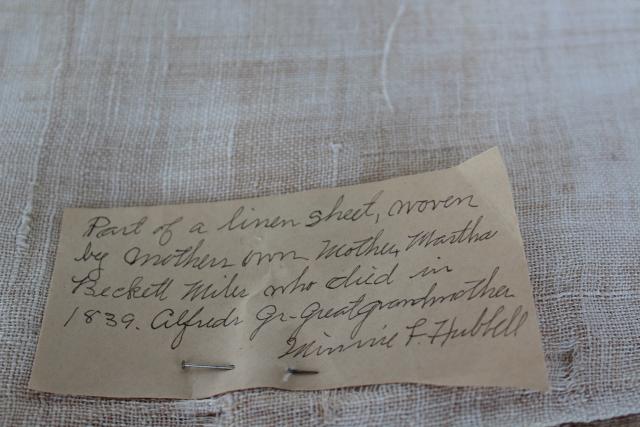 Part of a linen sheet, woven
by mothers own Mother, Martha
Beckett Miles who died in
1839. Alfreds Gr-Greatgrandmother
Minnie F. Hubbell